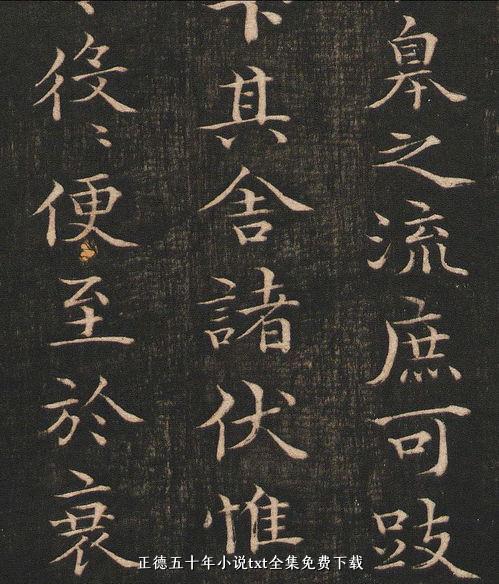 臯之流庶可跂
下其舍諸伏惟
〻役〻便至於衰
正德五十年小说txt全集免费下载